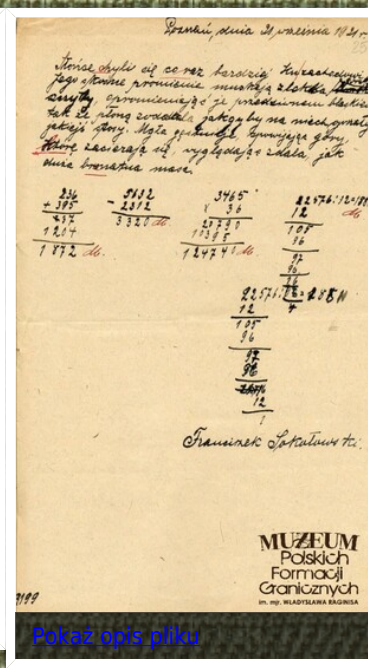 Poznań, dnia 21 września 1921 r
Słońce chyli się coraz bardziej ku zachodowi
Jego skośne promienie muskają złotem
szczyty, opromieniając je przedziwnem blaskiem
tak że płoną zdala jakgdyby na nich
jakiejś góry. Mgła spowijając góry,
które zacierają się, wyglądając zdala, jak
duża masa.
236
+ 395
237
1204
1872 db.
5632
- 2312
3320 db.
3465
x 36
20790
10395
124740 db.
22576:12=188
12
105
96
97
96
db.
22576:12=188
12
105
96
97
96
12
1
Franciszek Sokołowski.
3199
MUZEUM
Polskich
Formacji
Granicznych
im. mjr. WŁADYSŁAWA RAGINISA
Pokaż opis pliku